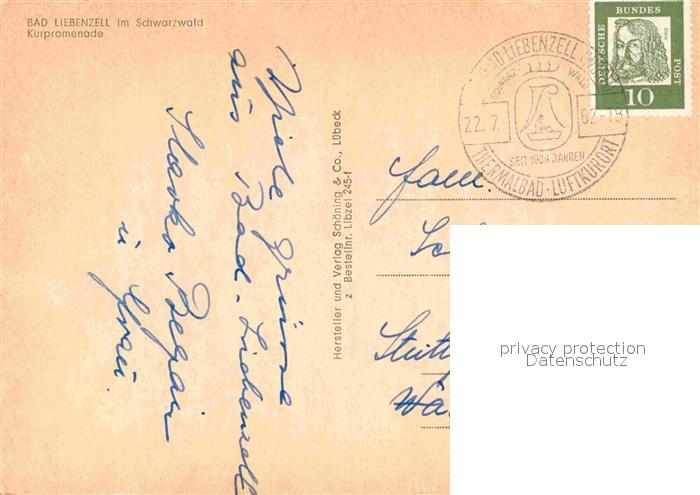 BAD LIEBENZELL im Schwarzwald
Kurpromenade
Viele Grüsse
aus Bad-Liebenzell
u Frau
Hersteller und Verlag Schöning & Co., Lübeck
z Bestellnr. Libzel 245-f
BAD LIEBENZELL
SCHWARZ- WALD
22.7. 62-18
SEIT 1000 JAHREN
THERMALBAD · LUFTKURORT
DEUTSCHE BUNDES POST
Dürer
10
Fam.
privacy protection
Datenschutz